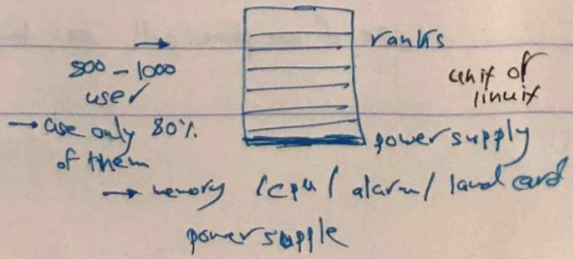 → ranks
800 - 1000
user
unix of
linuix
→ use only 80%
of them
power supply
→ memory / cpu / alarm / land card
power supple